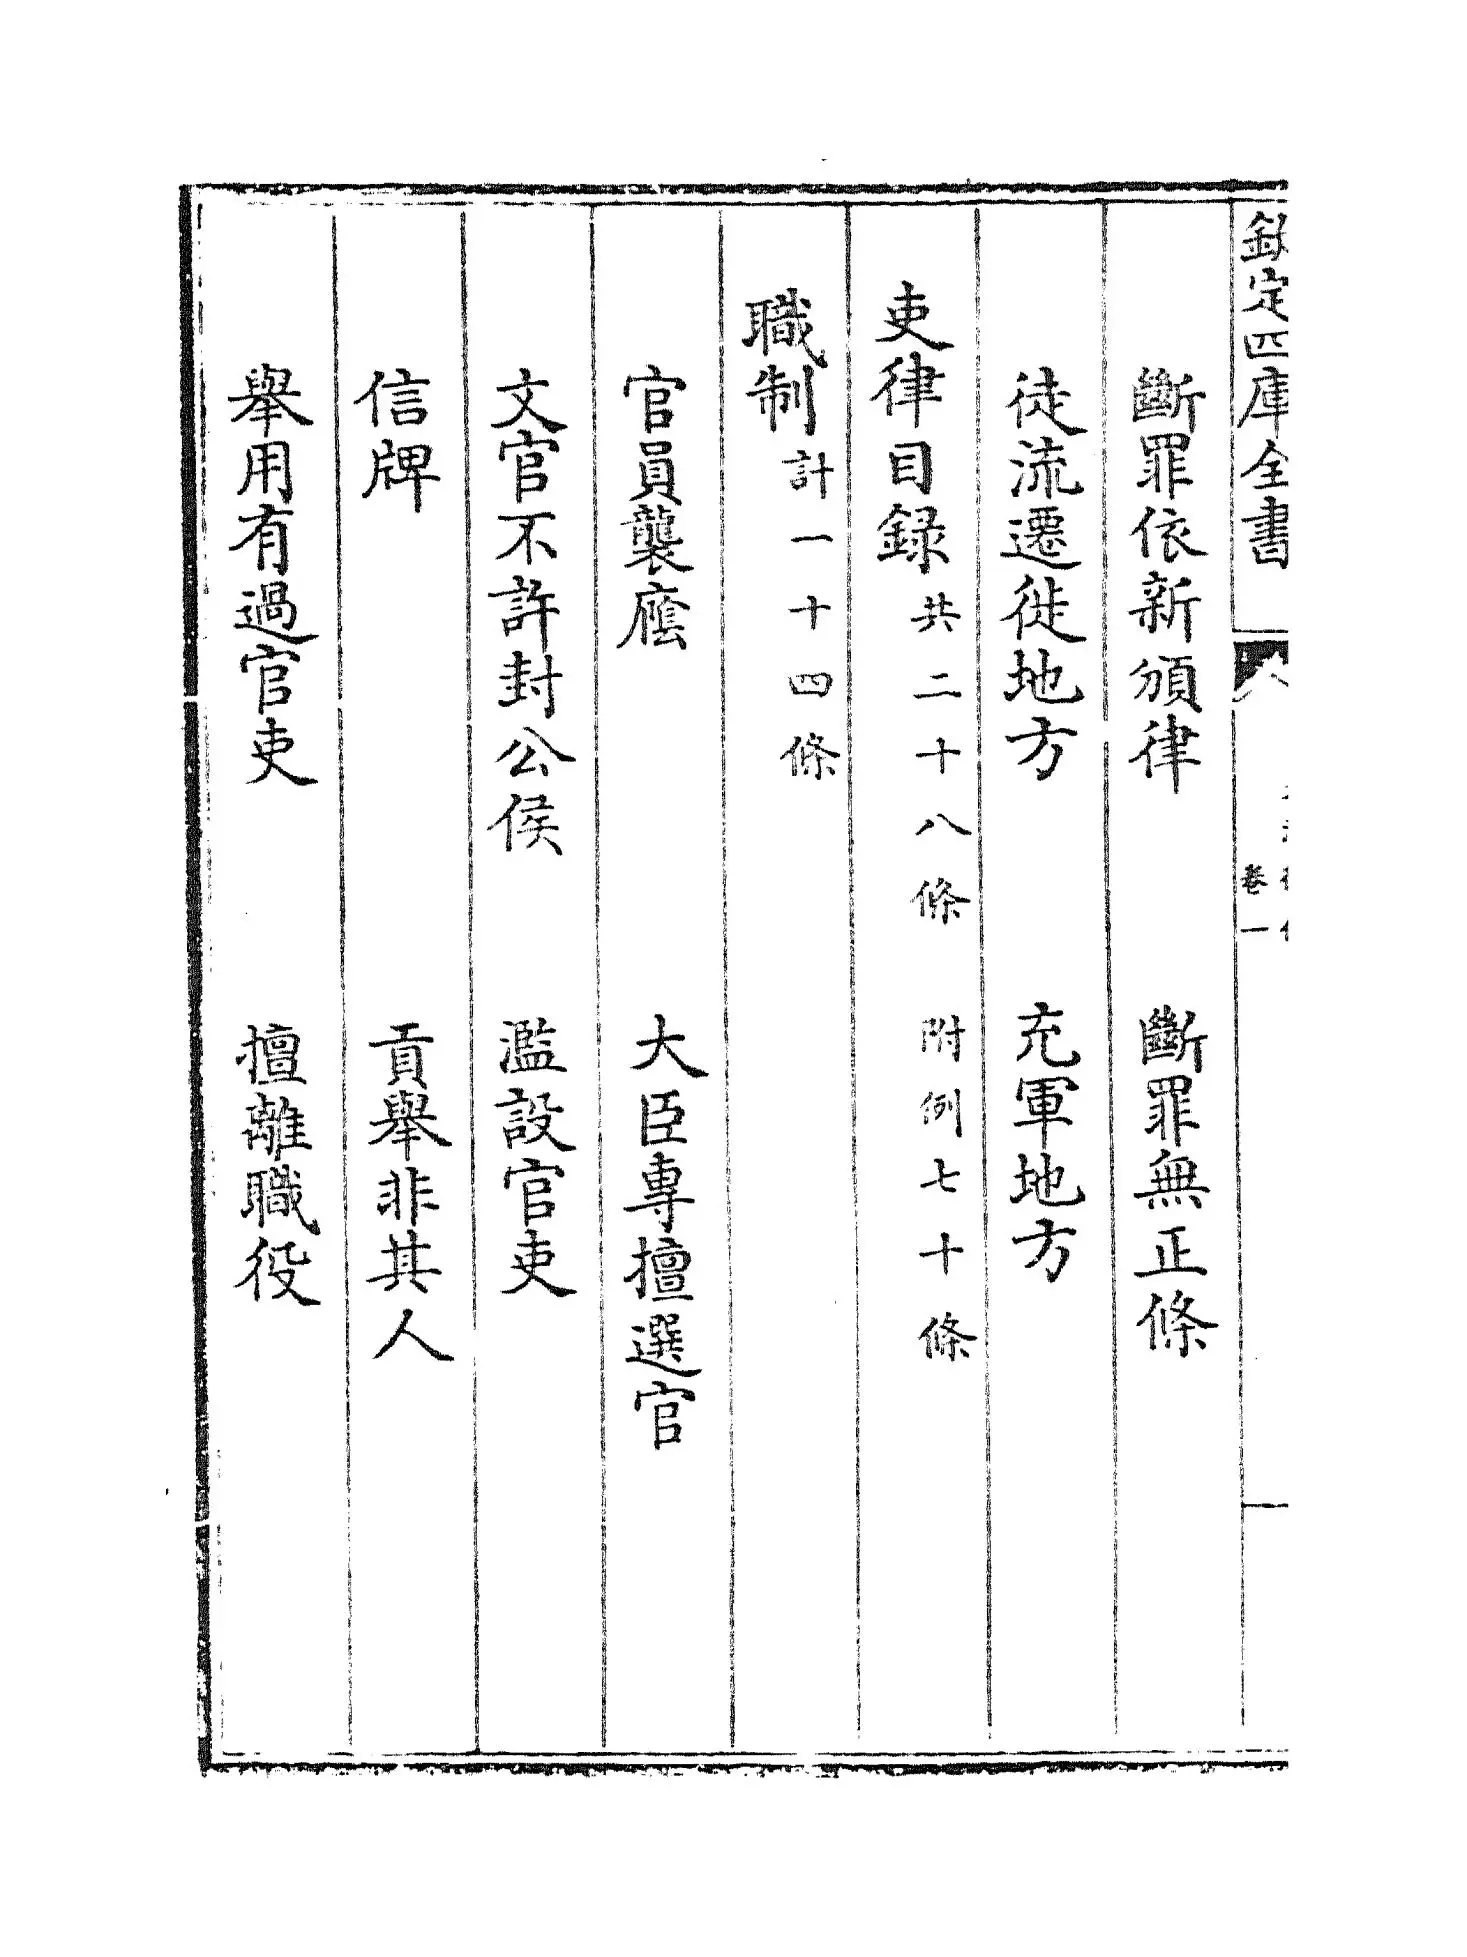 欽定四庫全書
卷一
斷罪依新頒律　斷罪無正條
徒流遷徙地方　充軍地方
吏律目録共二十八條　附例七十條
職制計一十四條
官員襲廕　大臣專擅選官
文官不許封公侯　濫設官吏
信牌　貢舉非其人
舉用有過官吏　擅離職役